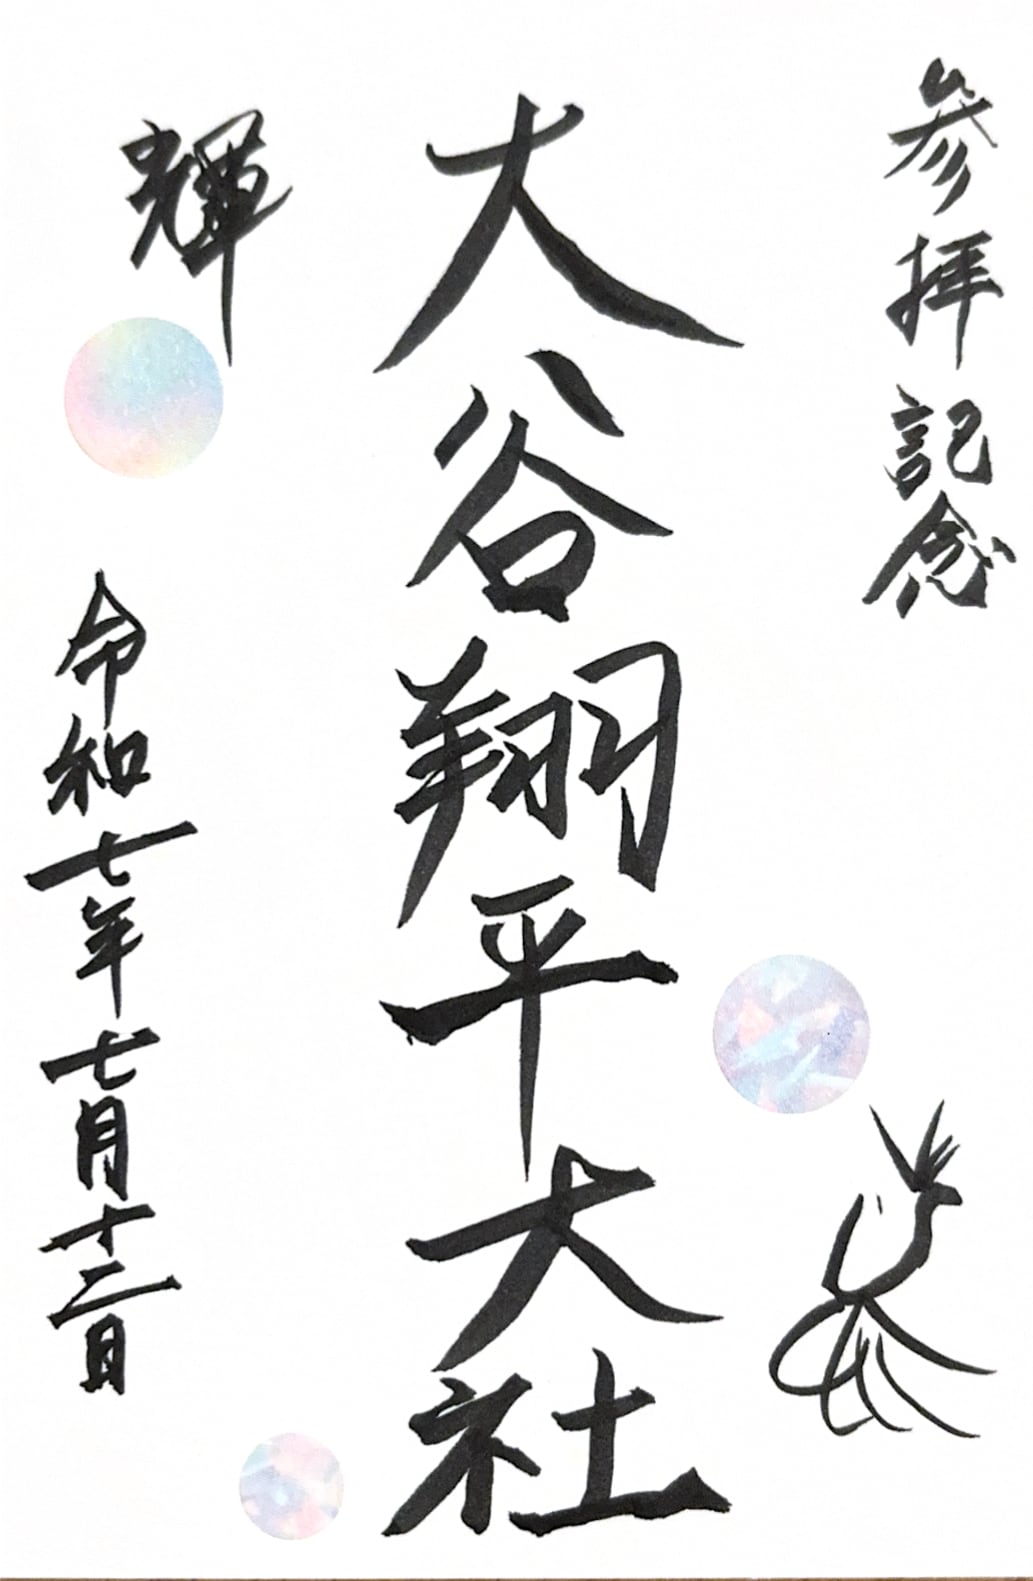 参拝記念
大谷翔平大社
輝
令和七年七月十二日